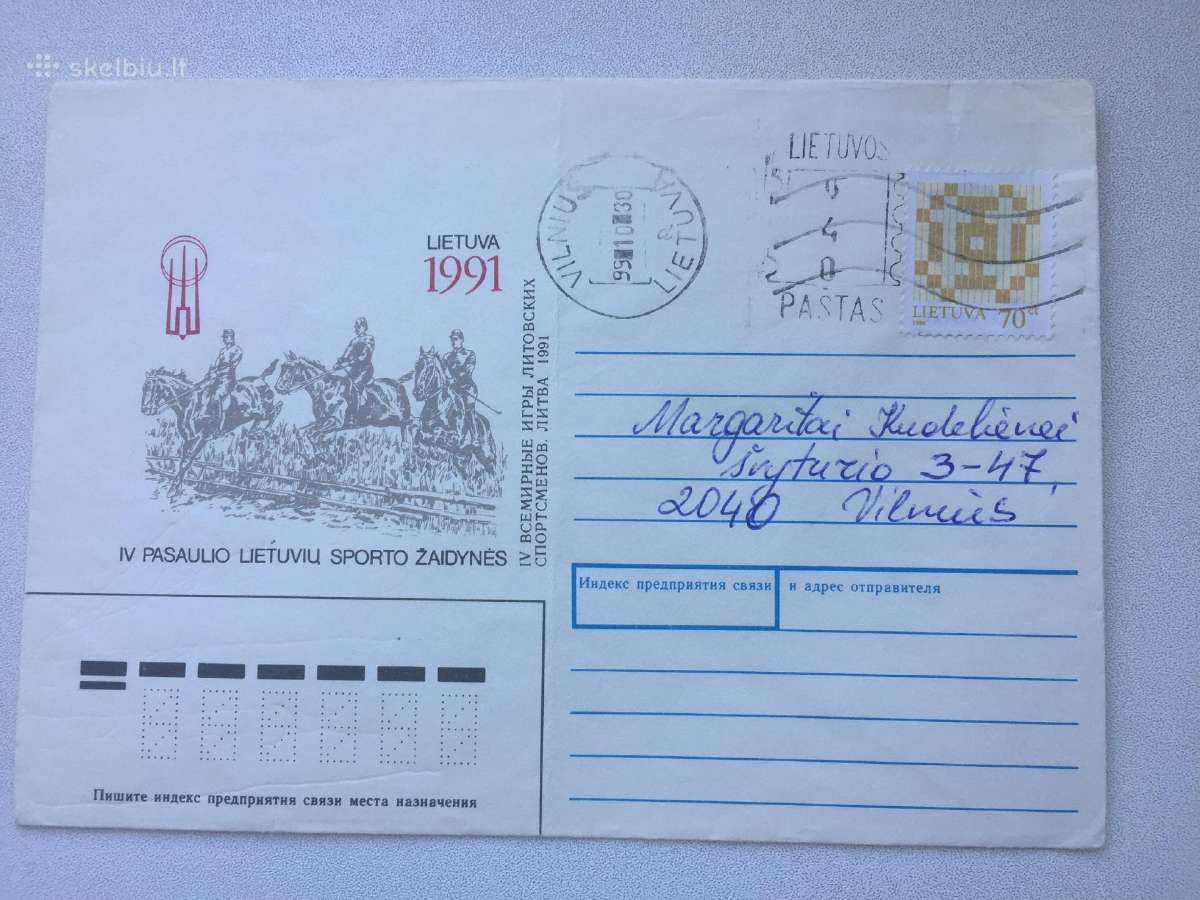 skelbiu.lt
LIETUVOS
040
PAŠTAS
VILNIUS
LIETUVA
LIETUVA 70ct
LIETUVA
1991
IV ВСЕМИРНЫЕ ИГРЫ ЛИТОВСКИХ
СПОРТСМЕНОВ. ЛИТВА 1991
IV PASAULIO LIETUVIŲ SPORTO ŽAIDYNĖS
Margaritai
3-47,
2040 Vilnius
Индекс предприятия связи и адрес отправителя
Пишите индекс предприятия связи места назначения